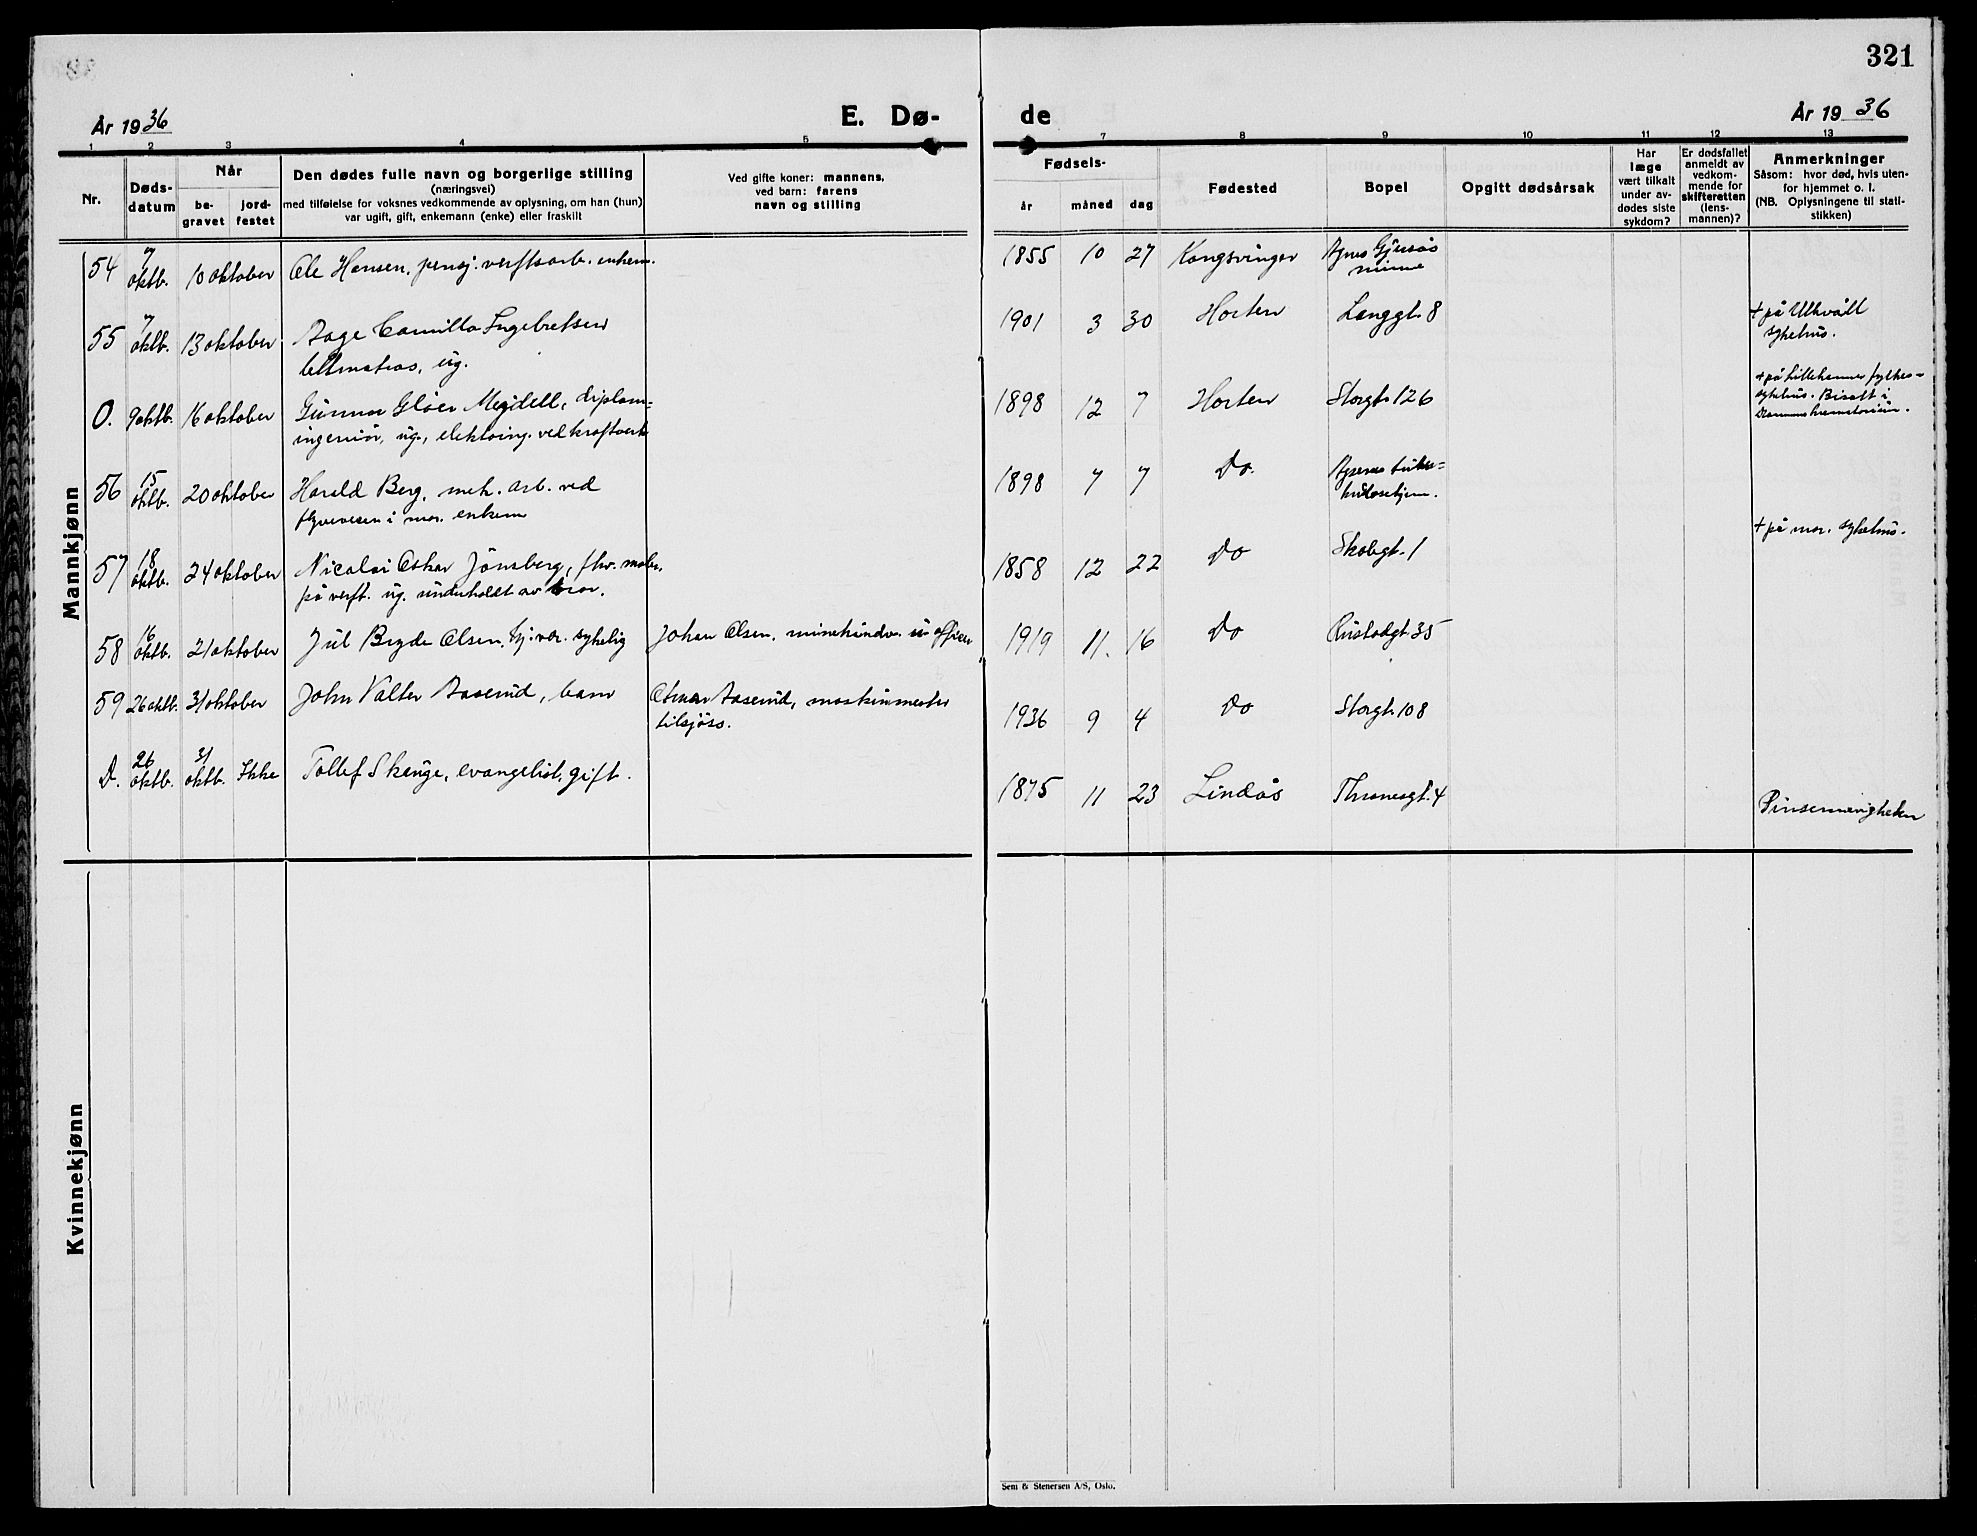 321
År 1936
E. Dø-
de
År 1936
1 2 3 4 5 7 8 9 10 11 12 13
Nr.
Døds-
datum
Når
be-
gravet
jord-
festet
Den dødes fulle navn og borgerlige stilling
(næringsvei)
med tilføielse for voksnes vedkommende av oplysning, om han (hun)
var ugift, gift, enkemann (enke) eller fraskilt
Ved gifte koner: mannens,
ved barn: farens
navn og stilling
Fødsels-
år måned dag
Fødested
Bopel
Opgitt dødsårsak
Har
læge
vært tilkalt
under av-
dødes siste
sykdom?
Er dødsfallet
anmeldt av
vedkom-
mende for
skifteretten
(lens-
mannen)?
Anmerkninger
Såsom: hvor død, hvis uten-
for hjemmet o. l.
(NB. Oplysningene til stati-
stikken)
Mannkjønn
54 7 oktb. 10 oktober Ole Hansen, pensj. verftsarb. enkem. 1855 10 27 Kongsvinger Agnes Gjersøs
minne
55 7 oktb. 13 oktober Aage Camillo Ingebretsen 1901 3 30 Horten Langgt. 8 + på Ullevåll
lettmatros, ug. sykehus.
O. 9 oktb. 16 oktober Gunnar Gløer Mejdell, diplom= 1898 12 7 Horten Storgt. 126 + på Lillehammer fylkes=
ingeniør, ug., elektroing. ved kraftverk sykehus. Bisatt i
Drammens krematorium.
56 15 oktb. 20 oktober Harald Berg, mek. arb. ved 1898 7 7 Do.
flyvevesen i mar. enkem
57 18 oktb. 24 oktober Nicolai Oskar Jönsberg, fhv. maler 1858 12 22 Do Skolegt. 1 + på mar. sykehus.
på verft. ug. underholdt av bror.
58 16 oktb. 21 oktober Jul Bryde Olsen, hj. vær. sykelig Johan Olsen, minehåndv. u offiser 1919 11. 16 Do Rustadgt 35
59 26 oktb. 31 oktober John Valter Aaserud, barn Aaserud, maskinmester 1936 9 4 Do Storgt. 108
tilsjøss.
D. 26 oktb. 31 oktb. Ikke Tollef Skauge, evangelist, gift. 1875 11 23 Lindås Thranesgt. 4 Pinsemenigheten
Kvinnekjønn
Sem & Stenersen A/S, Oslo.